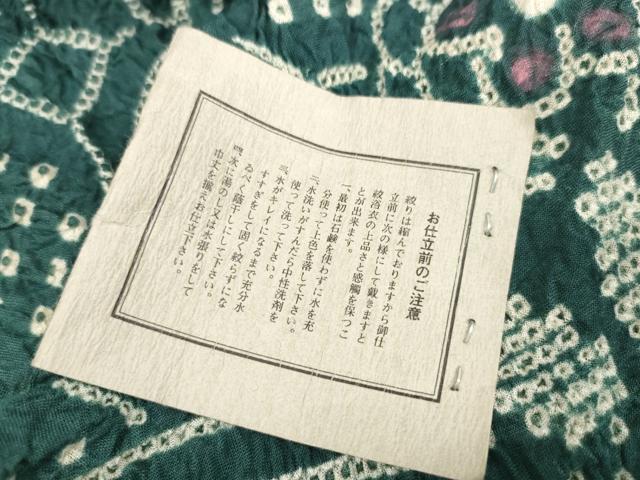 お仕立前のご注意
絞りは縮んでおりますから御仕
立前に次の様にして戴きますと
絞浴衣の上品さと感觸を保つこ
とが出来ます。
一、最初は石鹸を使わずに水を充
分使って上色を落して下さい。
二、水洗いがすんだら中性洗剤を
使って洗って下さい。
三、水がキレイになるまで充分水
すすぎをして固く絞らずにな
るべく蔭干しにして下さい。
四、次に湯のし又は水張りをして
巾丈を揃えお仕立下さい。